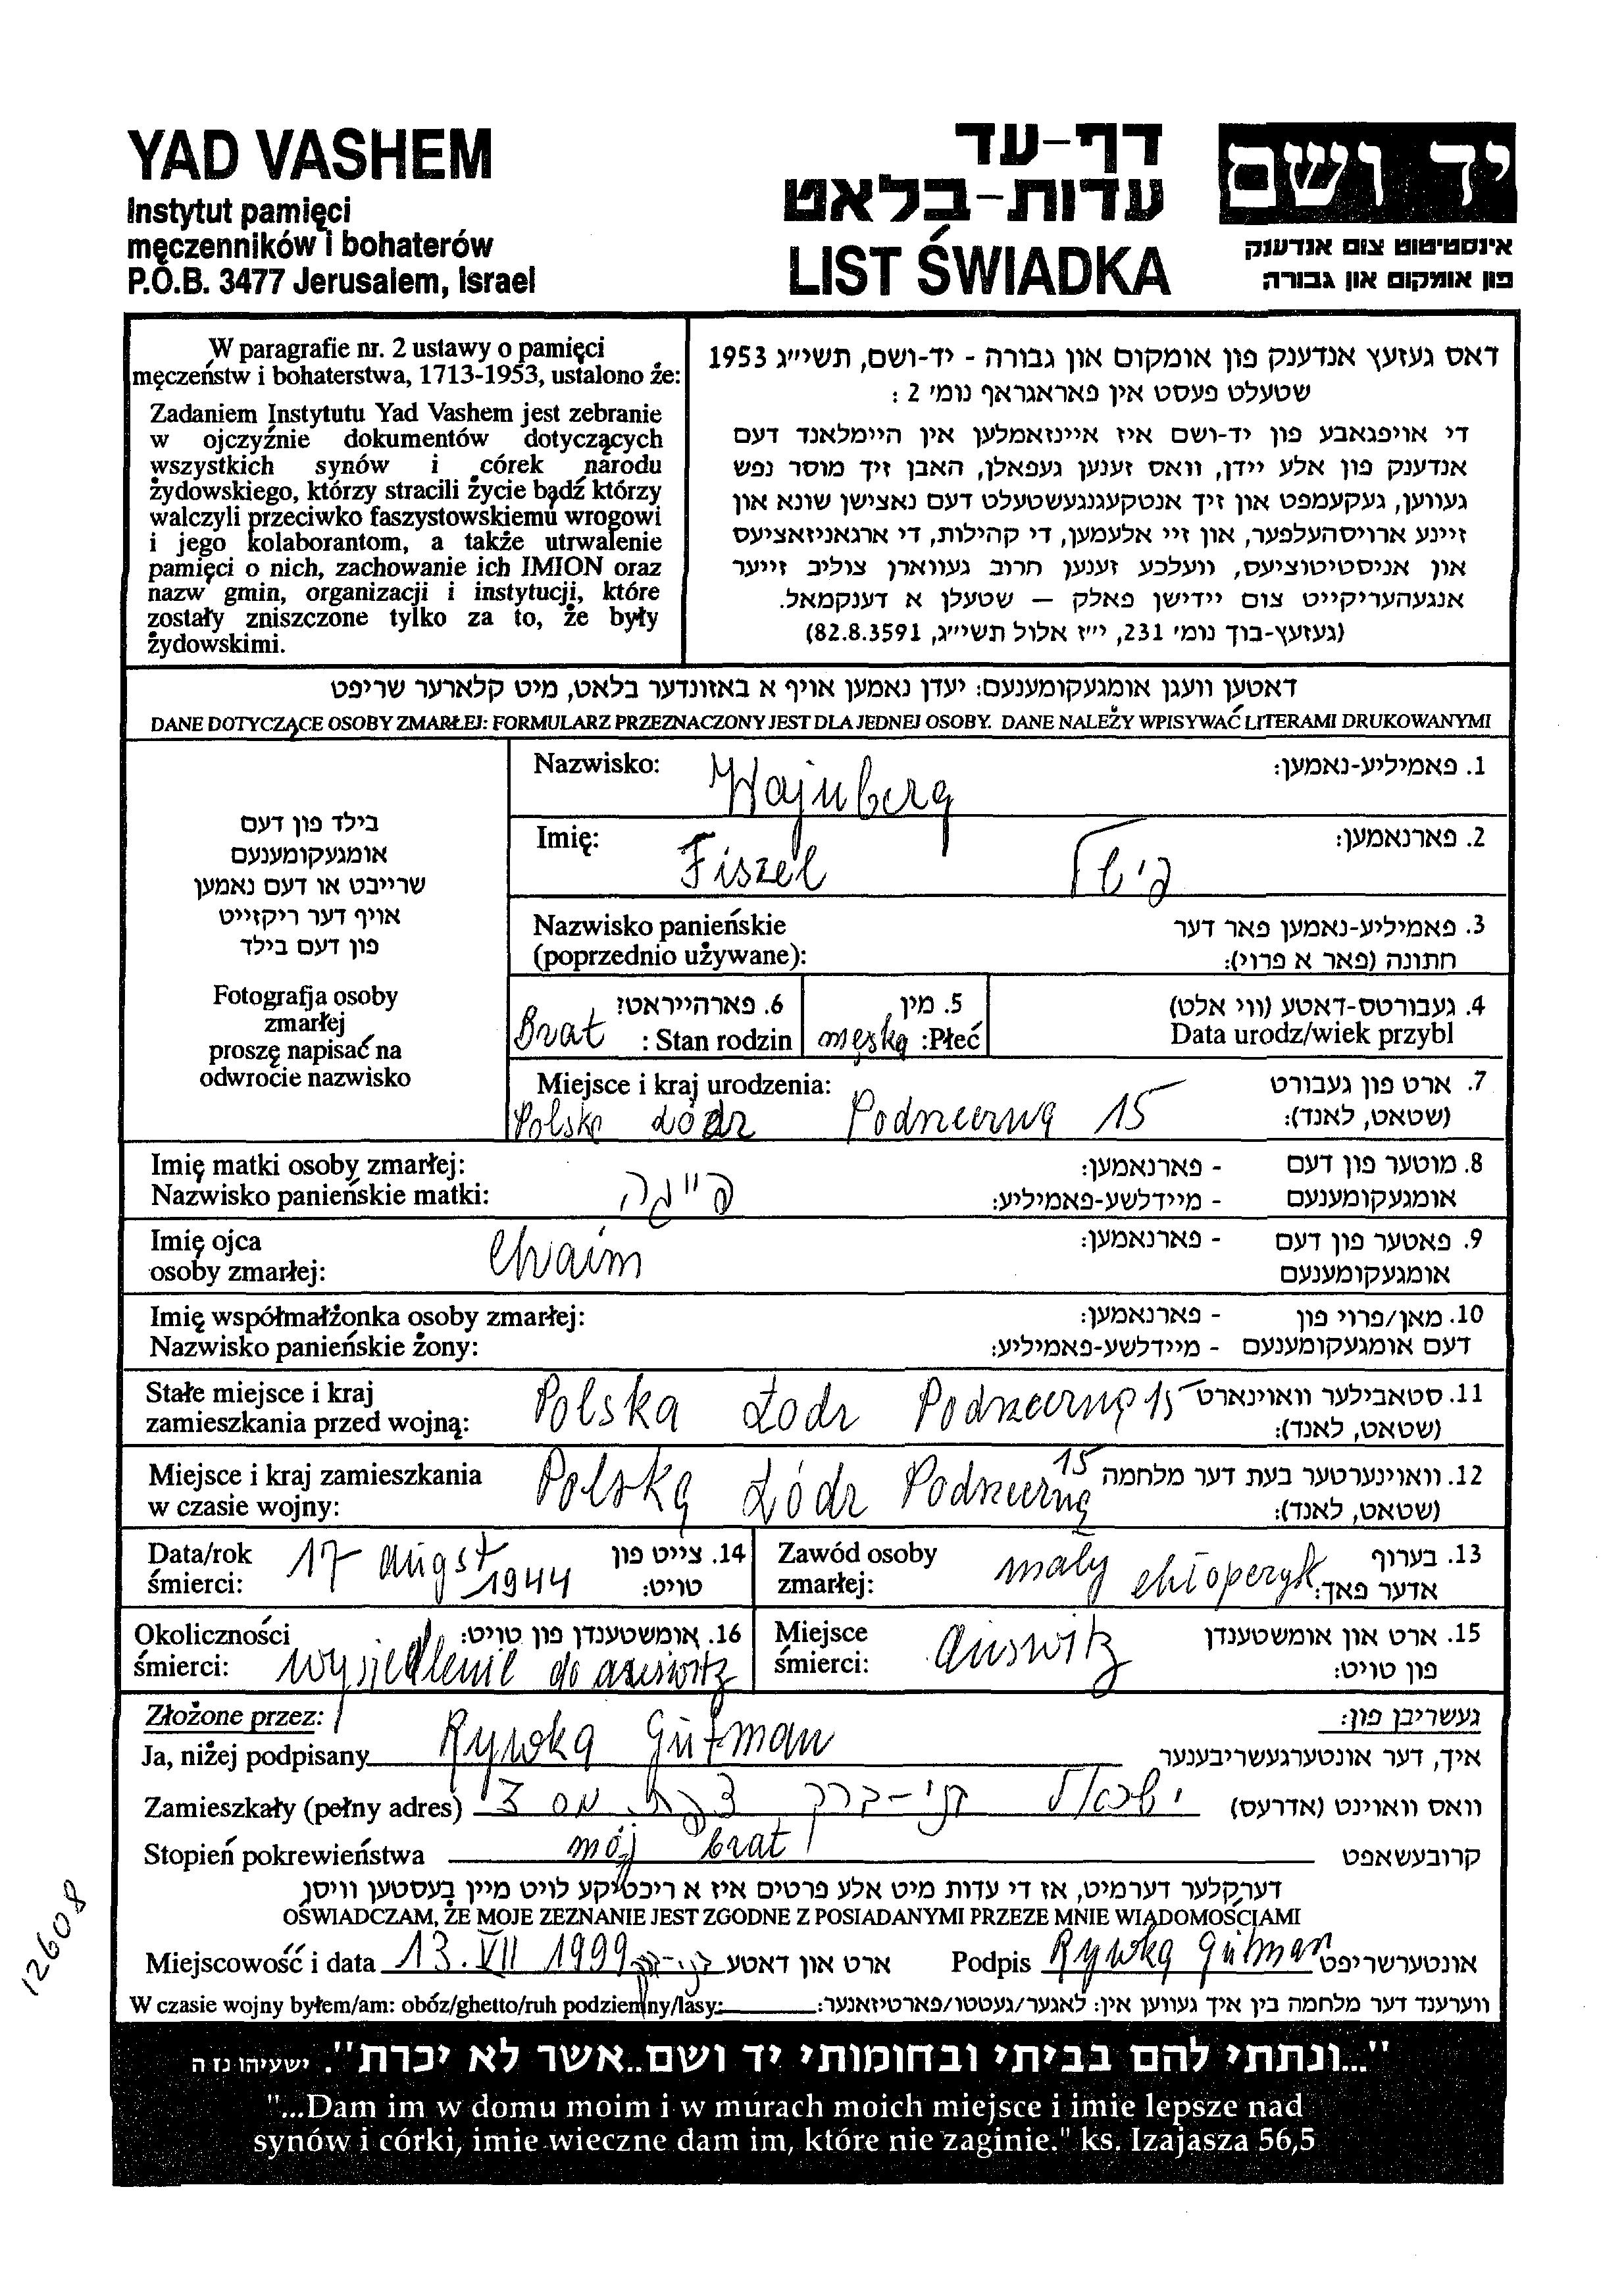 YAD VASHEM
Instytut pamięci
męczenników i bohaterów
P.O.B. 3477 Jerusalem, Israel
דף-עד
עדות-בלאט
LIST ŚWIADKA
יד ושם
אינסטיטוט צום אנדענק
פון אומקום און גבורה
W paragrafie nr. 2 ustawy o pamięci
męczeństw i bohaterstwa, 1713-1953, ustalono że:
Zadaniem Instytutu Yad Vashem jest zebranie
w ojczyźnie dokumentów dotyczących
wszystkich synów i córek narodu
żydowskiego, którzy stracili życie bądź którzy
walczyli przeciwko faszystowskiemu wrogowi
i jego kolaborantom, a także utrwalenie
pamięci o nich, zachowanie ich IMION oraz
nazw gmin, organizacji i instytucji, które
zostały zniszczone tylko za to, że były
żydowskimi.
דאס געזעץ אנדענק פון אומקום און גבורה - יד-ושם, תשי״ג 1953
שטעלט פעסט אין פאראגראף נומ׳ 2 :
די אויפגאבע פון יד-ושם איז איינזאמלען אין היימלאנד דעם
אנדענק פון אלע יידן, וואס זענען געפאלן, האבן זיך מוסר נפש
געווען, געקעמפט און זיך אנטקעגנגעשטעלט דעם נאצישן שונא און
זיינע ארויסהעלפער, און זיי אלעמען, די קהילות, די ארגאניזאציעס
און אניסטיטוציעס, וועלכע זענען חרוב געווארן צוליב זייער
אנגעהעריקייט צום יידישן פאלק – שטעלן א דענקמאל.
(געזעץ-בוך נומ׳ 231, י״ז אלול תשי״ג, 82.8.3591)
דאטען וועגן אומגעקומענעם: יעדן נאמען אויף א באזונדער בלאט, מיט קלארער שריפט
DANE DOTYCZĄCE OSOBY ZMARŁEJ: FORMULARZ PRZEZNACZONY JEST DLA JEDNEJ OSOBY. DANE NALEŻY WPISYWAĆ LITERAMI DRUKOWANYMI
בילד פון דעם
אומגעקומענעם
שרייבט או דעם נאמען
אויף דער ריקזייט
פון דעם בילד
Fotografja osoby
zmarłej
proszę napisać na
odwrocie nazwisko
Nazwisko: Wajnberg 1. פאמיליע-נאמען:
Imię: Fiszel פישל 2. פארנאמען:
Nazwisko panieńskie 3. פאמיליע-נאמען פאר דער
(poprzednio używane): חתונה (פאר א פרוי):
6. פארהייראט? 5. מין 4. געבורטס-דאטע (ווי אלט)
Brat : Stan rodzin męska :Płeć Data urodz/wiek przybl
Miejsce i kraj urodzenia: 7. ארט פון געבורט
Polska Łódz Podrzeczna 15 (שטאט, לאנד):
Imię matki osoby zmarłej: - פארנאמען: 8. מוטער פון דעם
Nazwisko panieńskie matki: פייגה - מיידלשע-פאמיליע: אומגעקומענעם
Imię ojca Chaim - פארנאמען: 9. פאטער פון דעם
osoby zmarłej: אומגעקומענעם
Imię współmałżonka osoby zmarłej: - פארנאמען: 10. מאן/פרוי פון
Nazwisko panieńskie żony: - מיידלשע-פאמיליע: דעם אומגעקומענעם
Stałe miejsce i kraj Polska Łodz Podrzeczna 15 11. סטאבילער וואוינארט
zamieszkania przed wojną: (שטאט, לאנד):
Miejsce i kraj zamieszkania Polska Łódz Podrzeczna 15 12. וואוינערטער בעת דער מלחמה
w czasie wojny: (שטאט, לאנד):
Data/rok 17 augst 14. צייט פון
śmierci: 1944 טויט:
Zawód osoby mały chłopczyk 13. בערוף
zmarłej: אדער פאך:
Okoliczności 16. אומשטענדן פון טויט:
śmierci: wysiedlenie do auswitz
Miejsce Auswitz 15. ארט און אומשטענדן
śmierci: פון טויט:
Złożone przez: געשריבן פון:
Ja, niżej podpisany Rywka Gutman איך, דער אונטערגעשריבענער
Zamieszkały (pełny adres) ישראל בני-ברק 3 וואס וואוינט (אדרעס)
Stopień pokrewieństwa mój brat קרובעשאפט
דערקלער דערמיט, אז די עדות מיט אלע פרטים איז א ריכטיקע לויט מיין בעסטען וויסן
OŚWIADCZAM, ŻE MOJE ZEZNANIE JEST ZGODNE Z POSIADANYMI PRZEZE MNIE WIADOMOŚCIAMI
Miejscowość i data 13.VII 1999 בני-ברק ארט און דאטע Podpis Rywka Gutman אונטערשריפט
W czasie wojny byłem/am: obóz/ghetto/ruh podziemny/lasy: ווערענד דער מלחמה בין איך געווען אין: לאגער/געטטו/פארטיזאנער:
12608
"...ונתתי להם בביתי ובחומותי יד ושם..אשר לא יכרת". ישעיהו נז ה
"...Dam im w domu moim i w murach moich miejsce i imie lepsze nad
synów i córki, imie wieczne dam im, które nie zaginie." ks. Izajasza 56,5